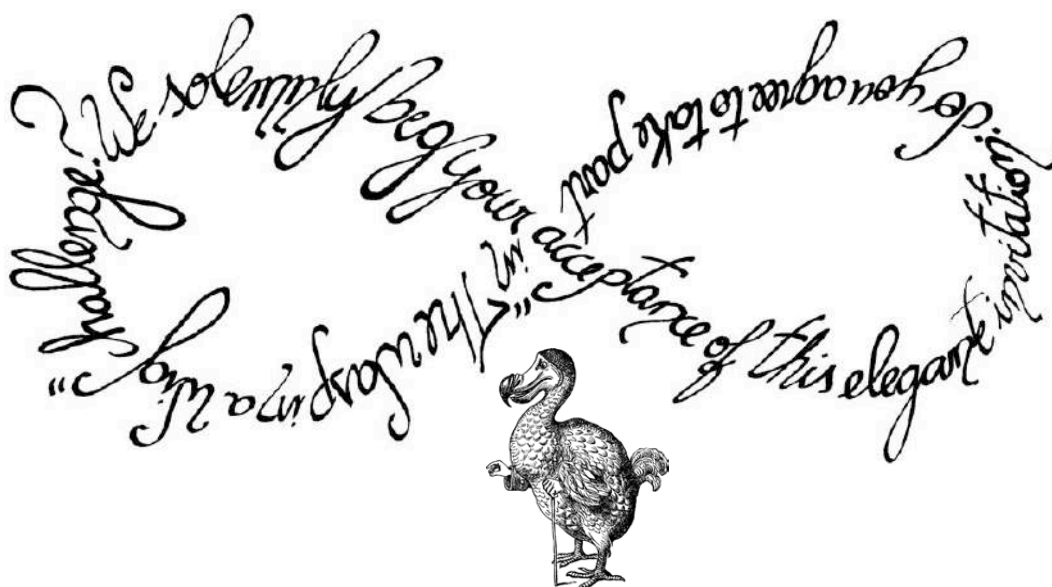 We solemnly beg your acceptance of this elegant invitation. Do you agree to take part in "The wasp in a wig" ?